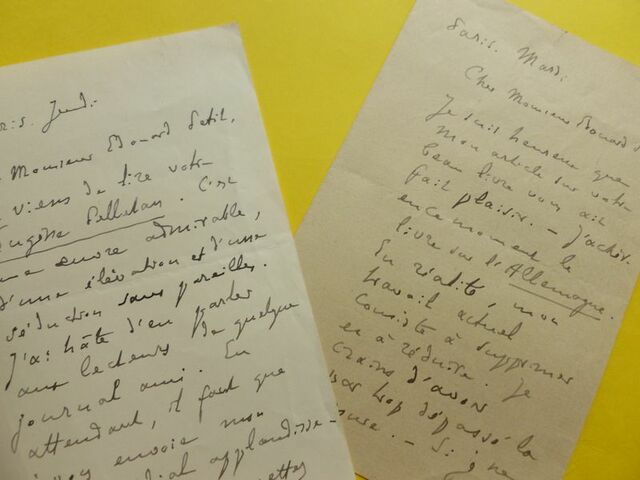 Jeudi
Monsieur Edouard Petit,
viens de lire votre
Eugène Pelletan. C'est
une œuvre admirable,
d'une élévation et d'une
séduction sans pareilles.
J'ai hâte d'en parler
aux lecteurs de quelque
journal ami. En
attendant, il faut que
envoie mon
applaudisse-
Paris. Mardi
Cher Monsieur Edouard
Je suis heureux que
mon article sur votre
beau livre vous ait
fait plaisir. — J'achève
en ce moment le
livre sur l'Allemagne.
En réalité, mon
travail actuel
consiste à supprimer
et à réduire. Je
crains d'avoir
par trop dépassé la